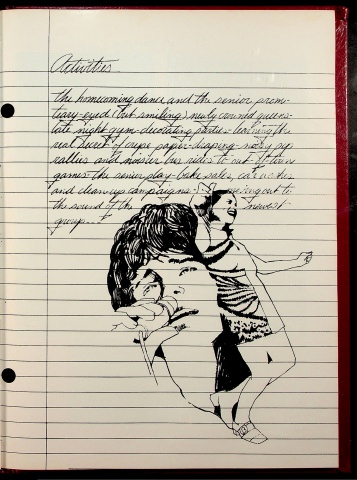 Activities
the homecoming dance and the senior prom-
teary-eyed (but smiling) newly crowned queens-
late night gym-decorating parties-learning the
real secret of crepe paper-draping-noisy pep
rallies and noisier bus rides to out-of-town
games-the senior play-bake sales, car washes
and clean up campaigns- moving out to
the sound of the newest
group...